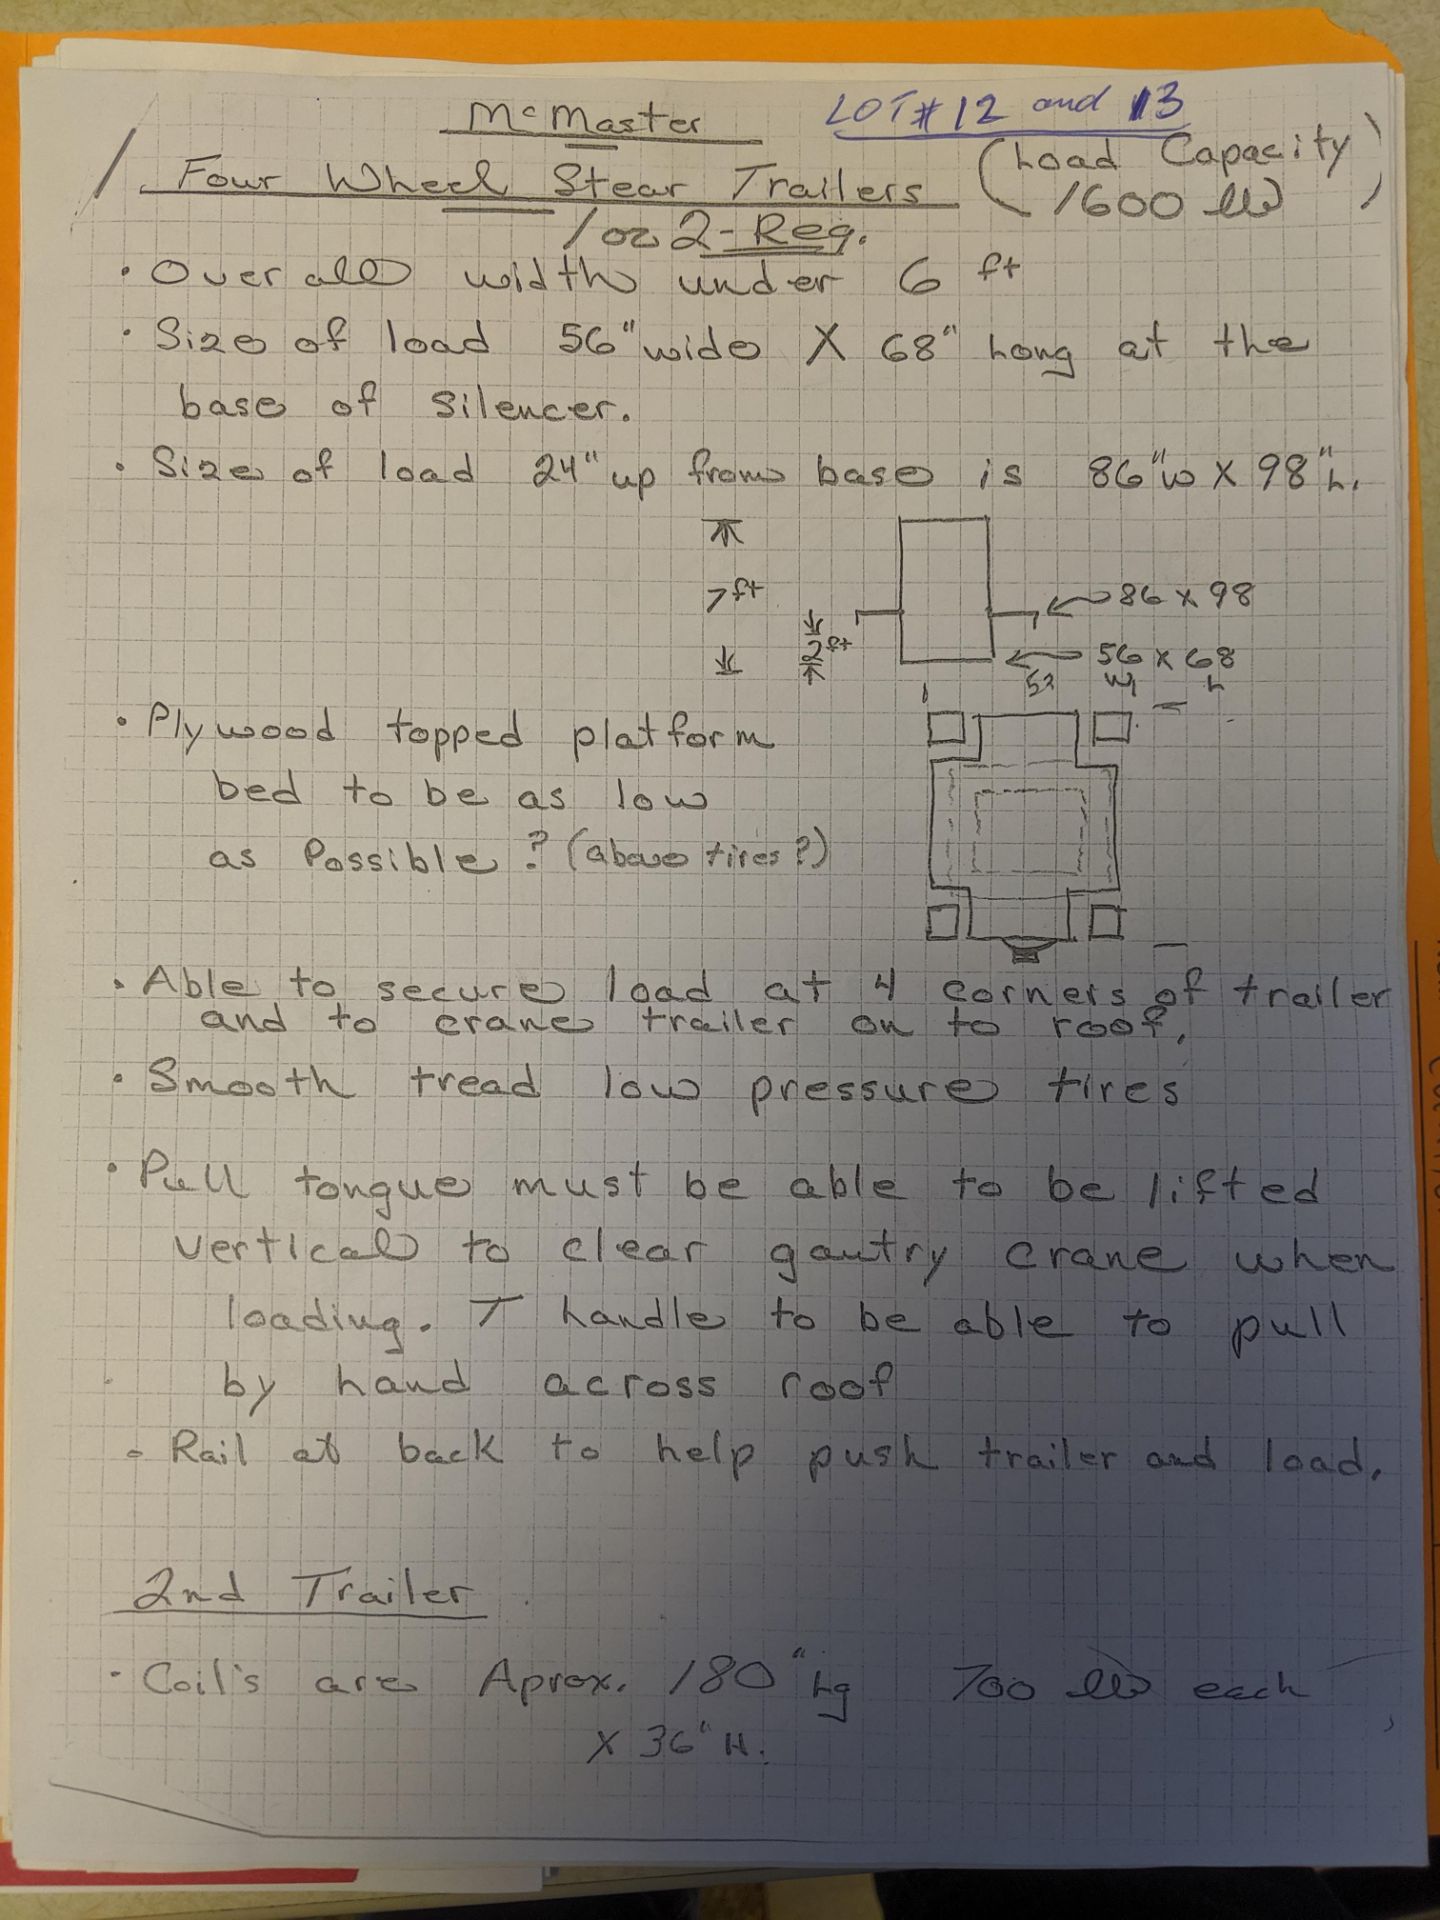 McMaster
LOT# 12 and 13
Four Wheel Stear Trailers
(Load Capacity
1600 lb)
1 or 2-Req.
• Over all width under 6 ft
• Size of load 56" wide X 68" Long at the
base of silencer.
• Size of load 24" up from base is 86"w X 98"L.
7 ft
2 ft
86 x 98
56 x 68
W L
• Plywood topped platform
bed to be as low
as Possible? (above tires?)
• Able to secure load at 4 corners of trailer
and to crane trailer on to roof.
• Smooth tread low pressure tires
• Pull tongue must be able to be lifted
vertical to clear gantry crane when
loading. T handle to be able to pull
by hand across roof
• Rail at back to help push trailer and load.
2nd Trailer
• Coil's are Aprox. 180" Lg 700 lb each
X 36" H.